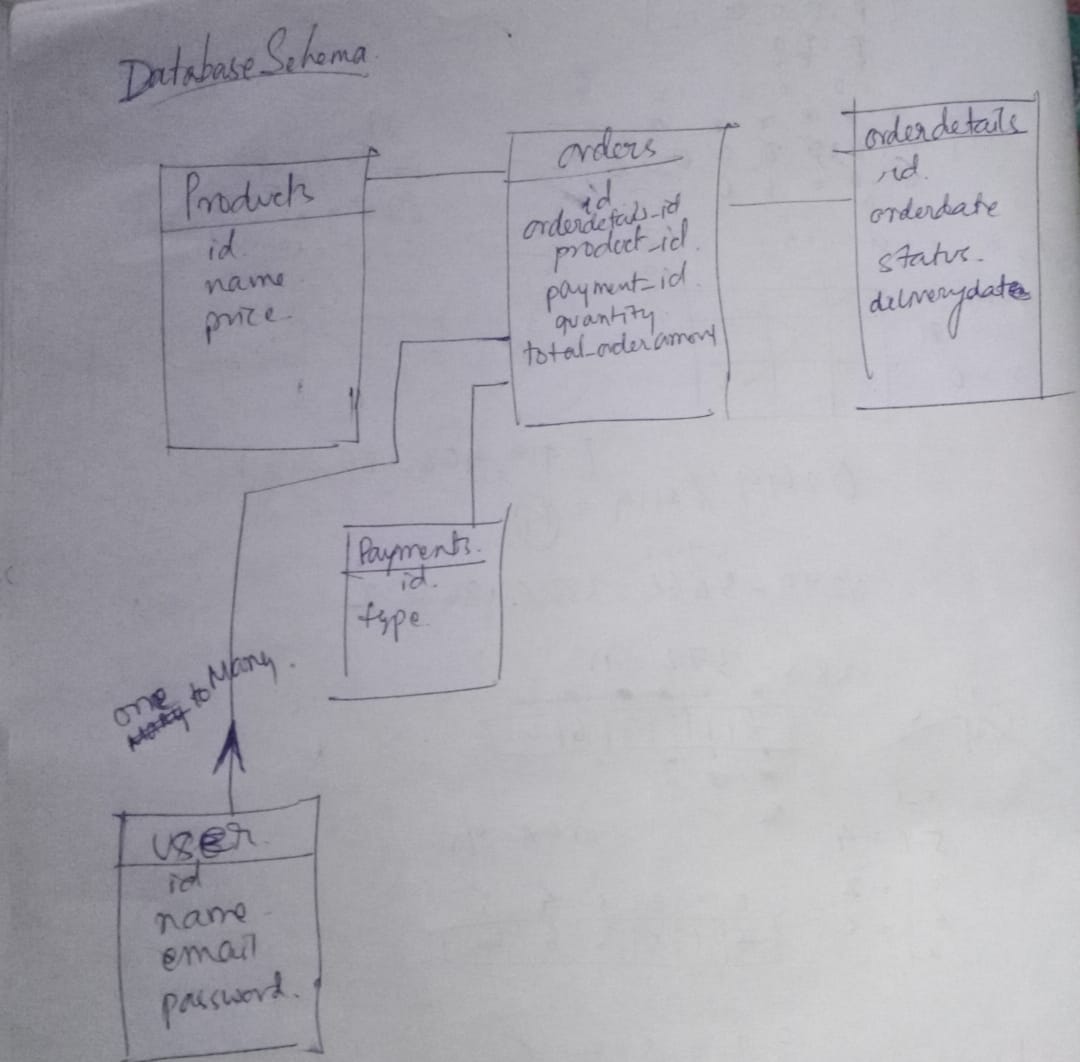 Database Schema.
Products
id.
name
price.
orders
id
orderdetails_id
product_id.
payment_id.
quantity
total_order amount
orderdetails
id.
orderdate
status.
deliverydate
Payments.
id.
type.
one
Many to Many.
user.
id
name
email
password.